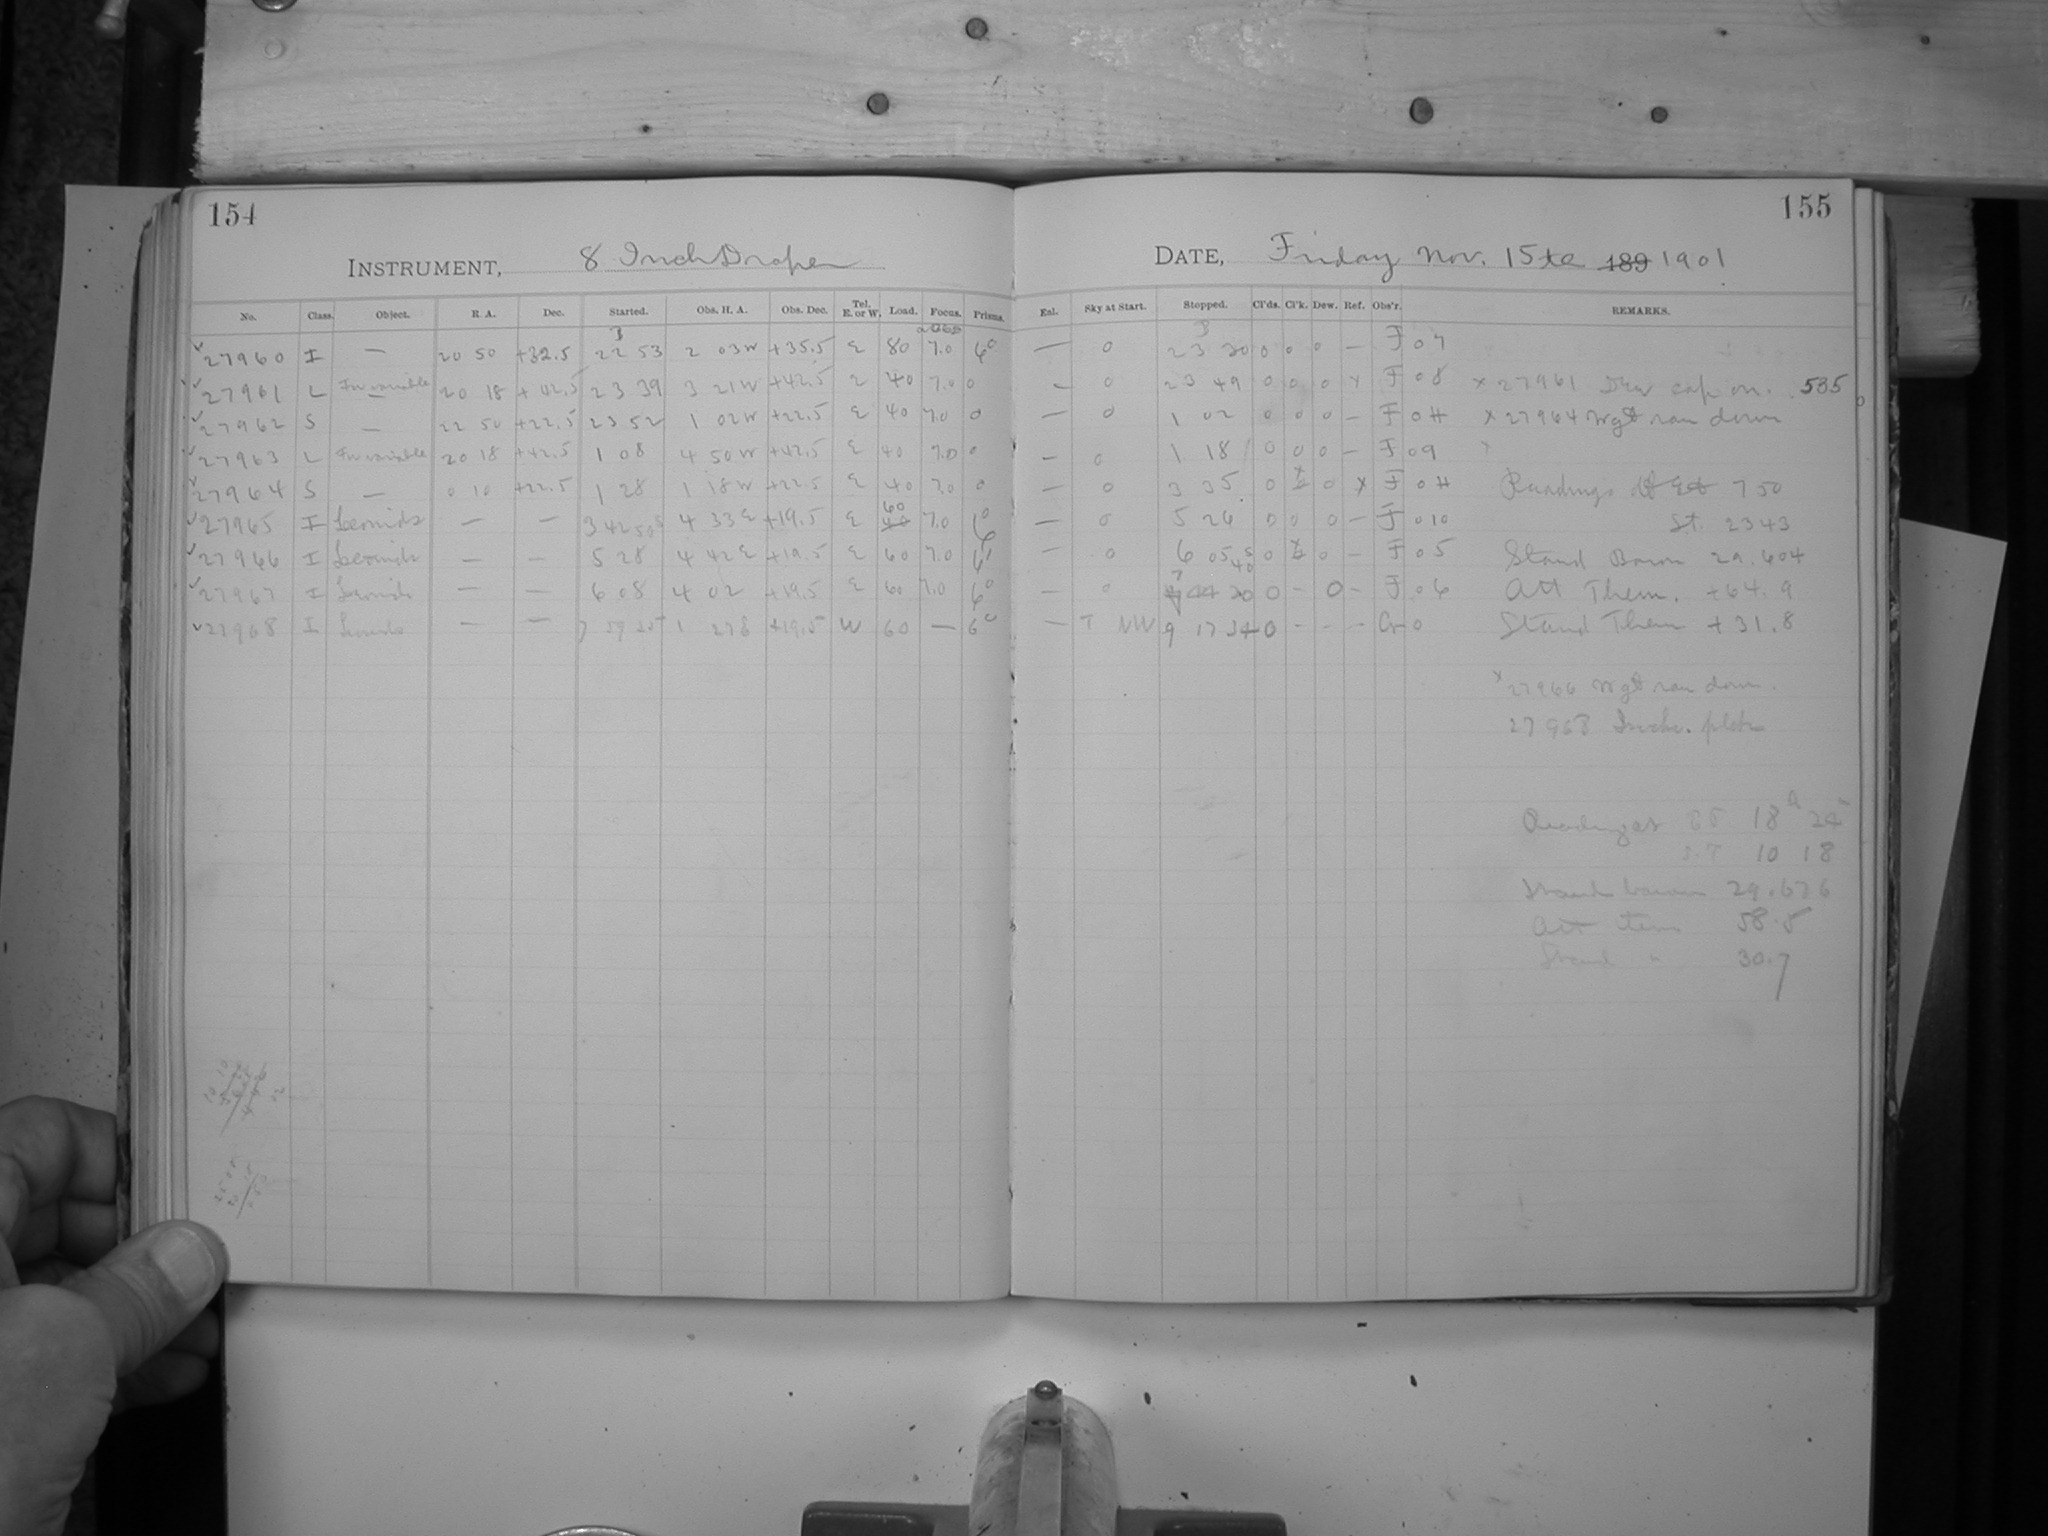 154
INSTRUMENT, 8 Inch Draper
No. Class. Object. R. A. Dec. Started. Obs. H. A. Obs. Dec. Tel. E. or W. Load. Focus. Prisms.
27960 I — 20 50 +32.5 22 53 2 03W +35.5 E 80 7.0 6°
27961 L Fm variable 20 18 +42.5 23 39 3 21W +42.5 E 40 7.0 0
27962 S — 22 50 +22.5 23 52 1 02W +22.5 E 40 7.0 0
27963 L Fm variable 20 18 +42.5 1 08 4 50W +42.5 E 40 7.0 0
27964 S — 0 10 +22.5 1 28 1 18W +22.5 E 40 7.0 0
27965 I Leonids — — 3 42 50 4 33E +19.5 E 60 7.0
27966 I Leonids — — 5 28 4 42E +19.5 E 60 7.0
27967 I Leonids — — 6 08 4 02 +19.5 E 60 7.0 6°
27968 I Leonids — — 7 59 1 27E +19.5 W 60 — 6°
155
DATE, Friday Nov. 15th 189 1901
Enl. Sky at Start. Stopped. Cl'ds. Cl'k. Dew. Ref. Obs'r. REMARKS.
— 0 23 20 0 0 0 — F 07
— 0 23 49 0 0 0 x F 08 x 27961 Dew cap on. 535
— 0 1 02 0 0 0 — F 0H x 27964 Wgt ran down
— 0 1 18 0 0 0 — F 09 x
— 0 3 35 0 x 0 x F 0H Readings 7 50
— 0 5 26 0 0 0 — F 010 St. 23 43
— 0 6 05 40 0 x 0 — F 05 Stand Barom 29.604
— 0 20 0 — 0 — F 06 Att Therm. +64.9
— T NW 9 17 34 0 — — — 0 Stand Therm +31.8
x 27966 Wgt ran down.
27968 plate
Readings at 18 24
S.T 10 18
Stand barom 29.626
Att therm 58.5
Stand " 30.7